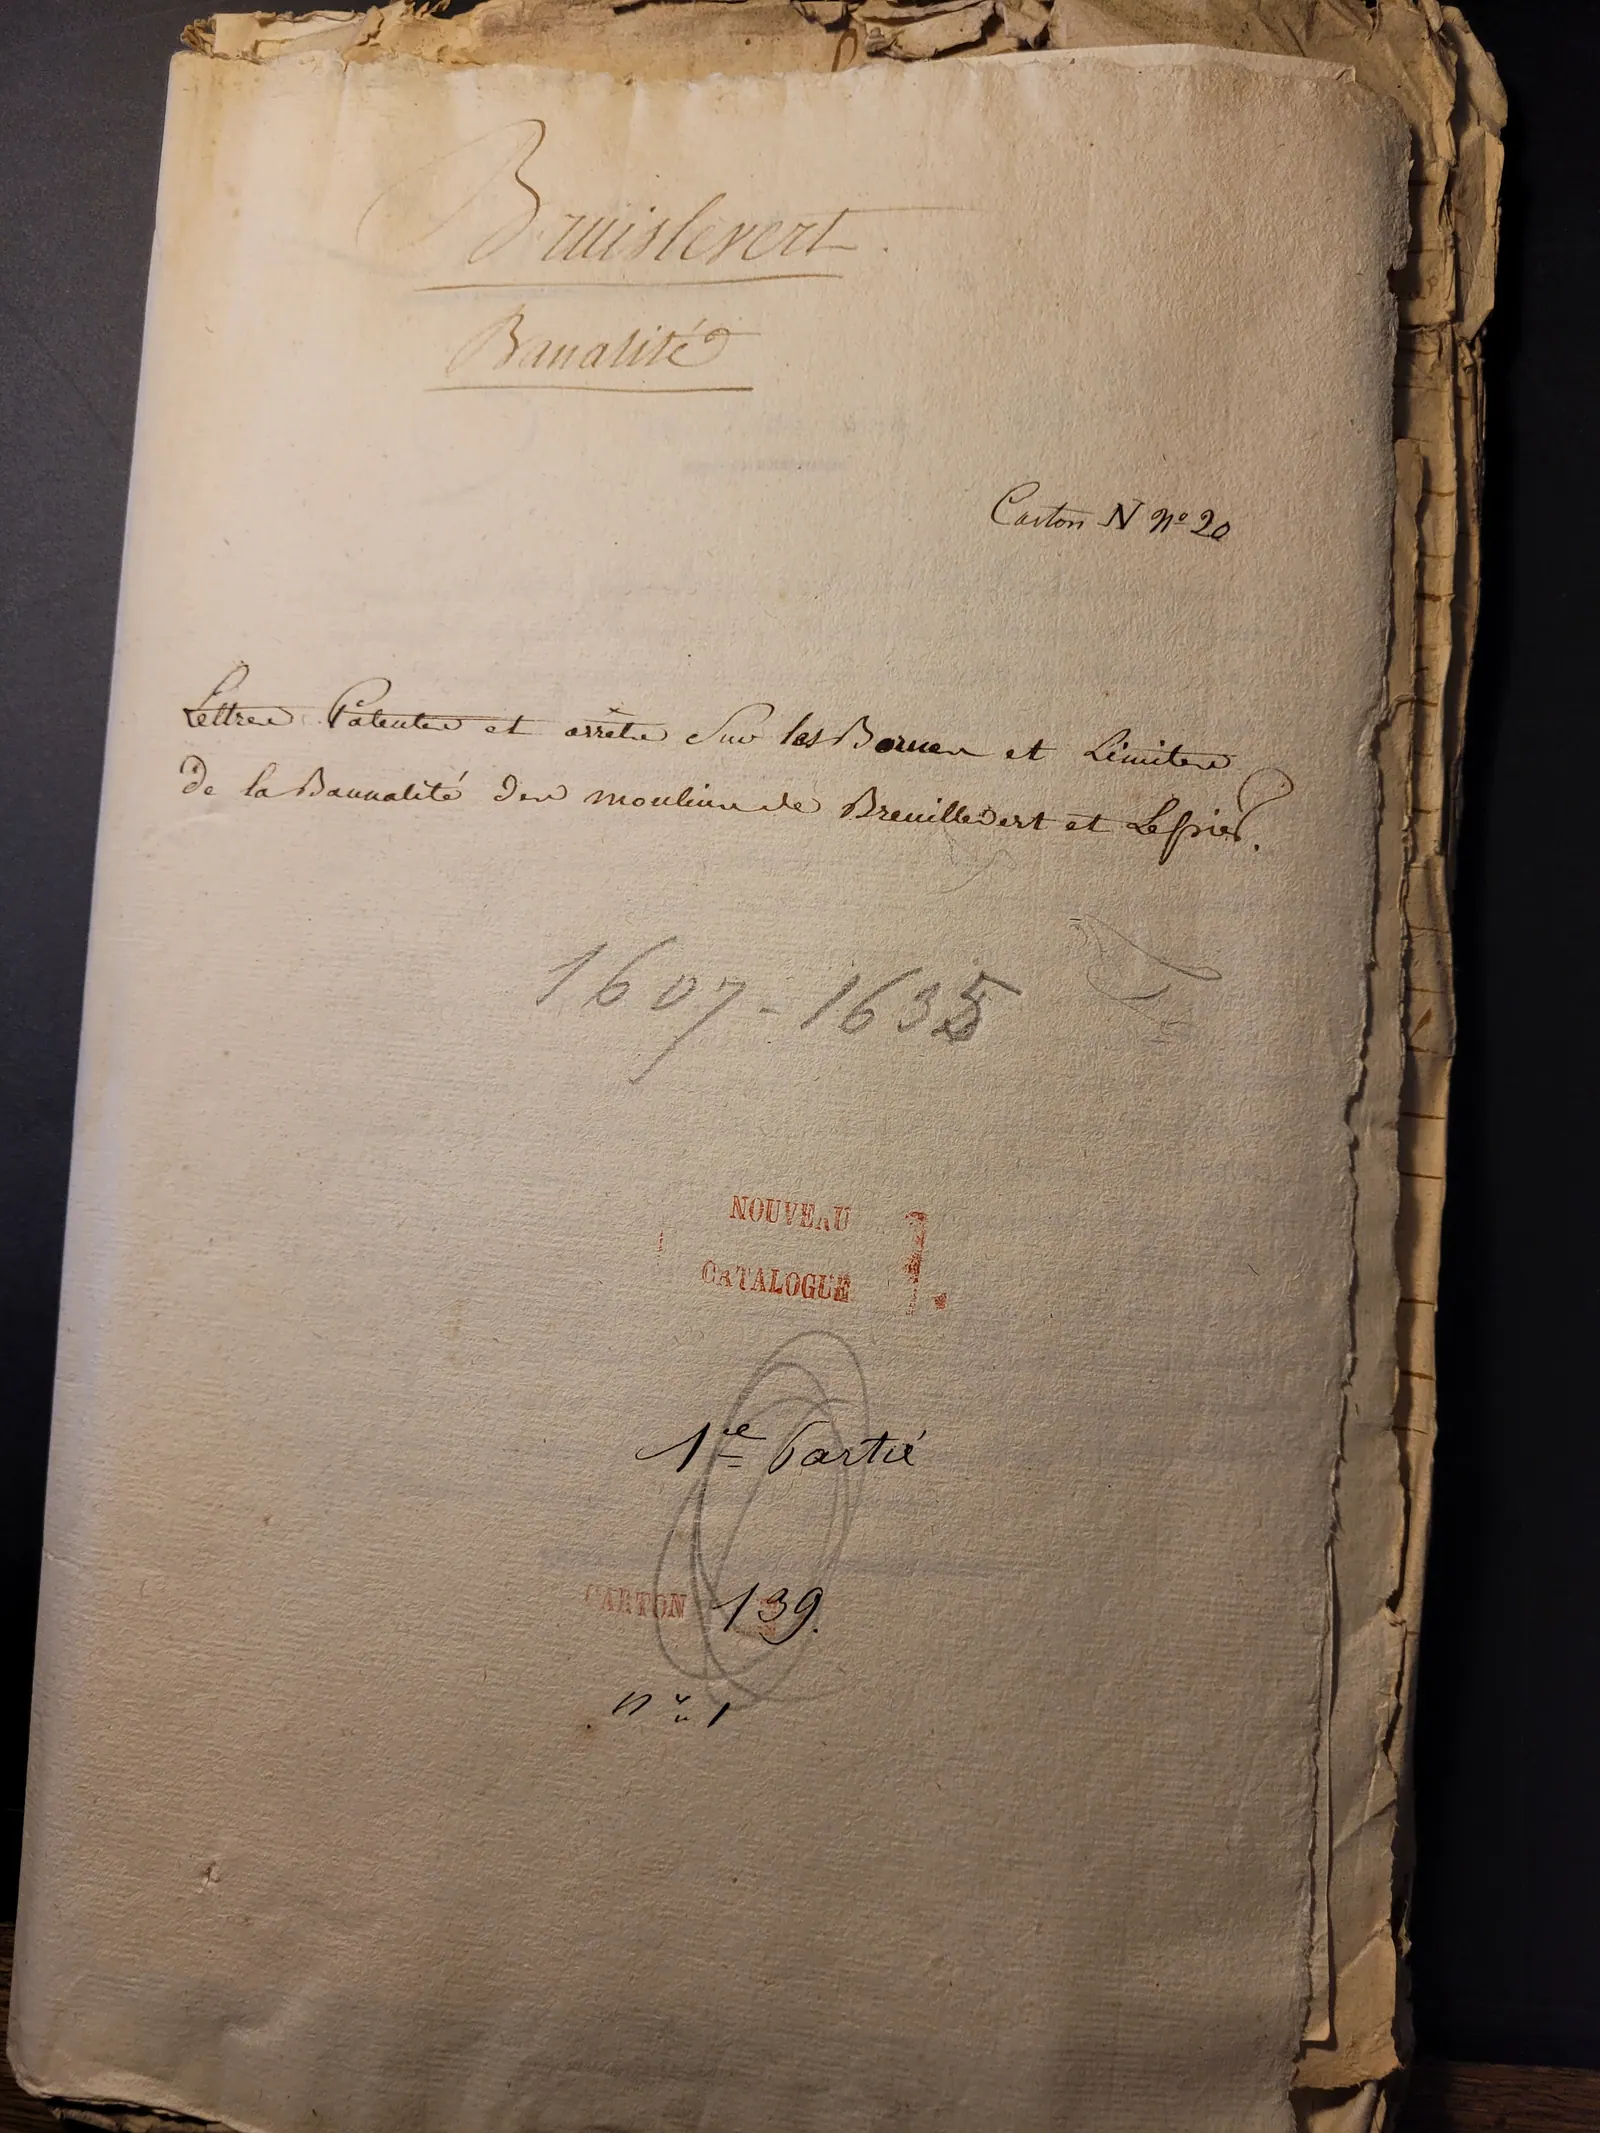 Bruislevert.
Banalité
Carton N nº 20
Lettres Patentes et arrêts Sur les Bornes et Limites
De la Bannalité des moulins de Breuillevert et
1607-1635
NOUVEAU
CATALOGUE 1.
1re Partie
CARTON 139.
nº 1